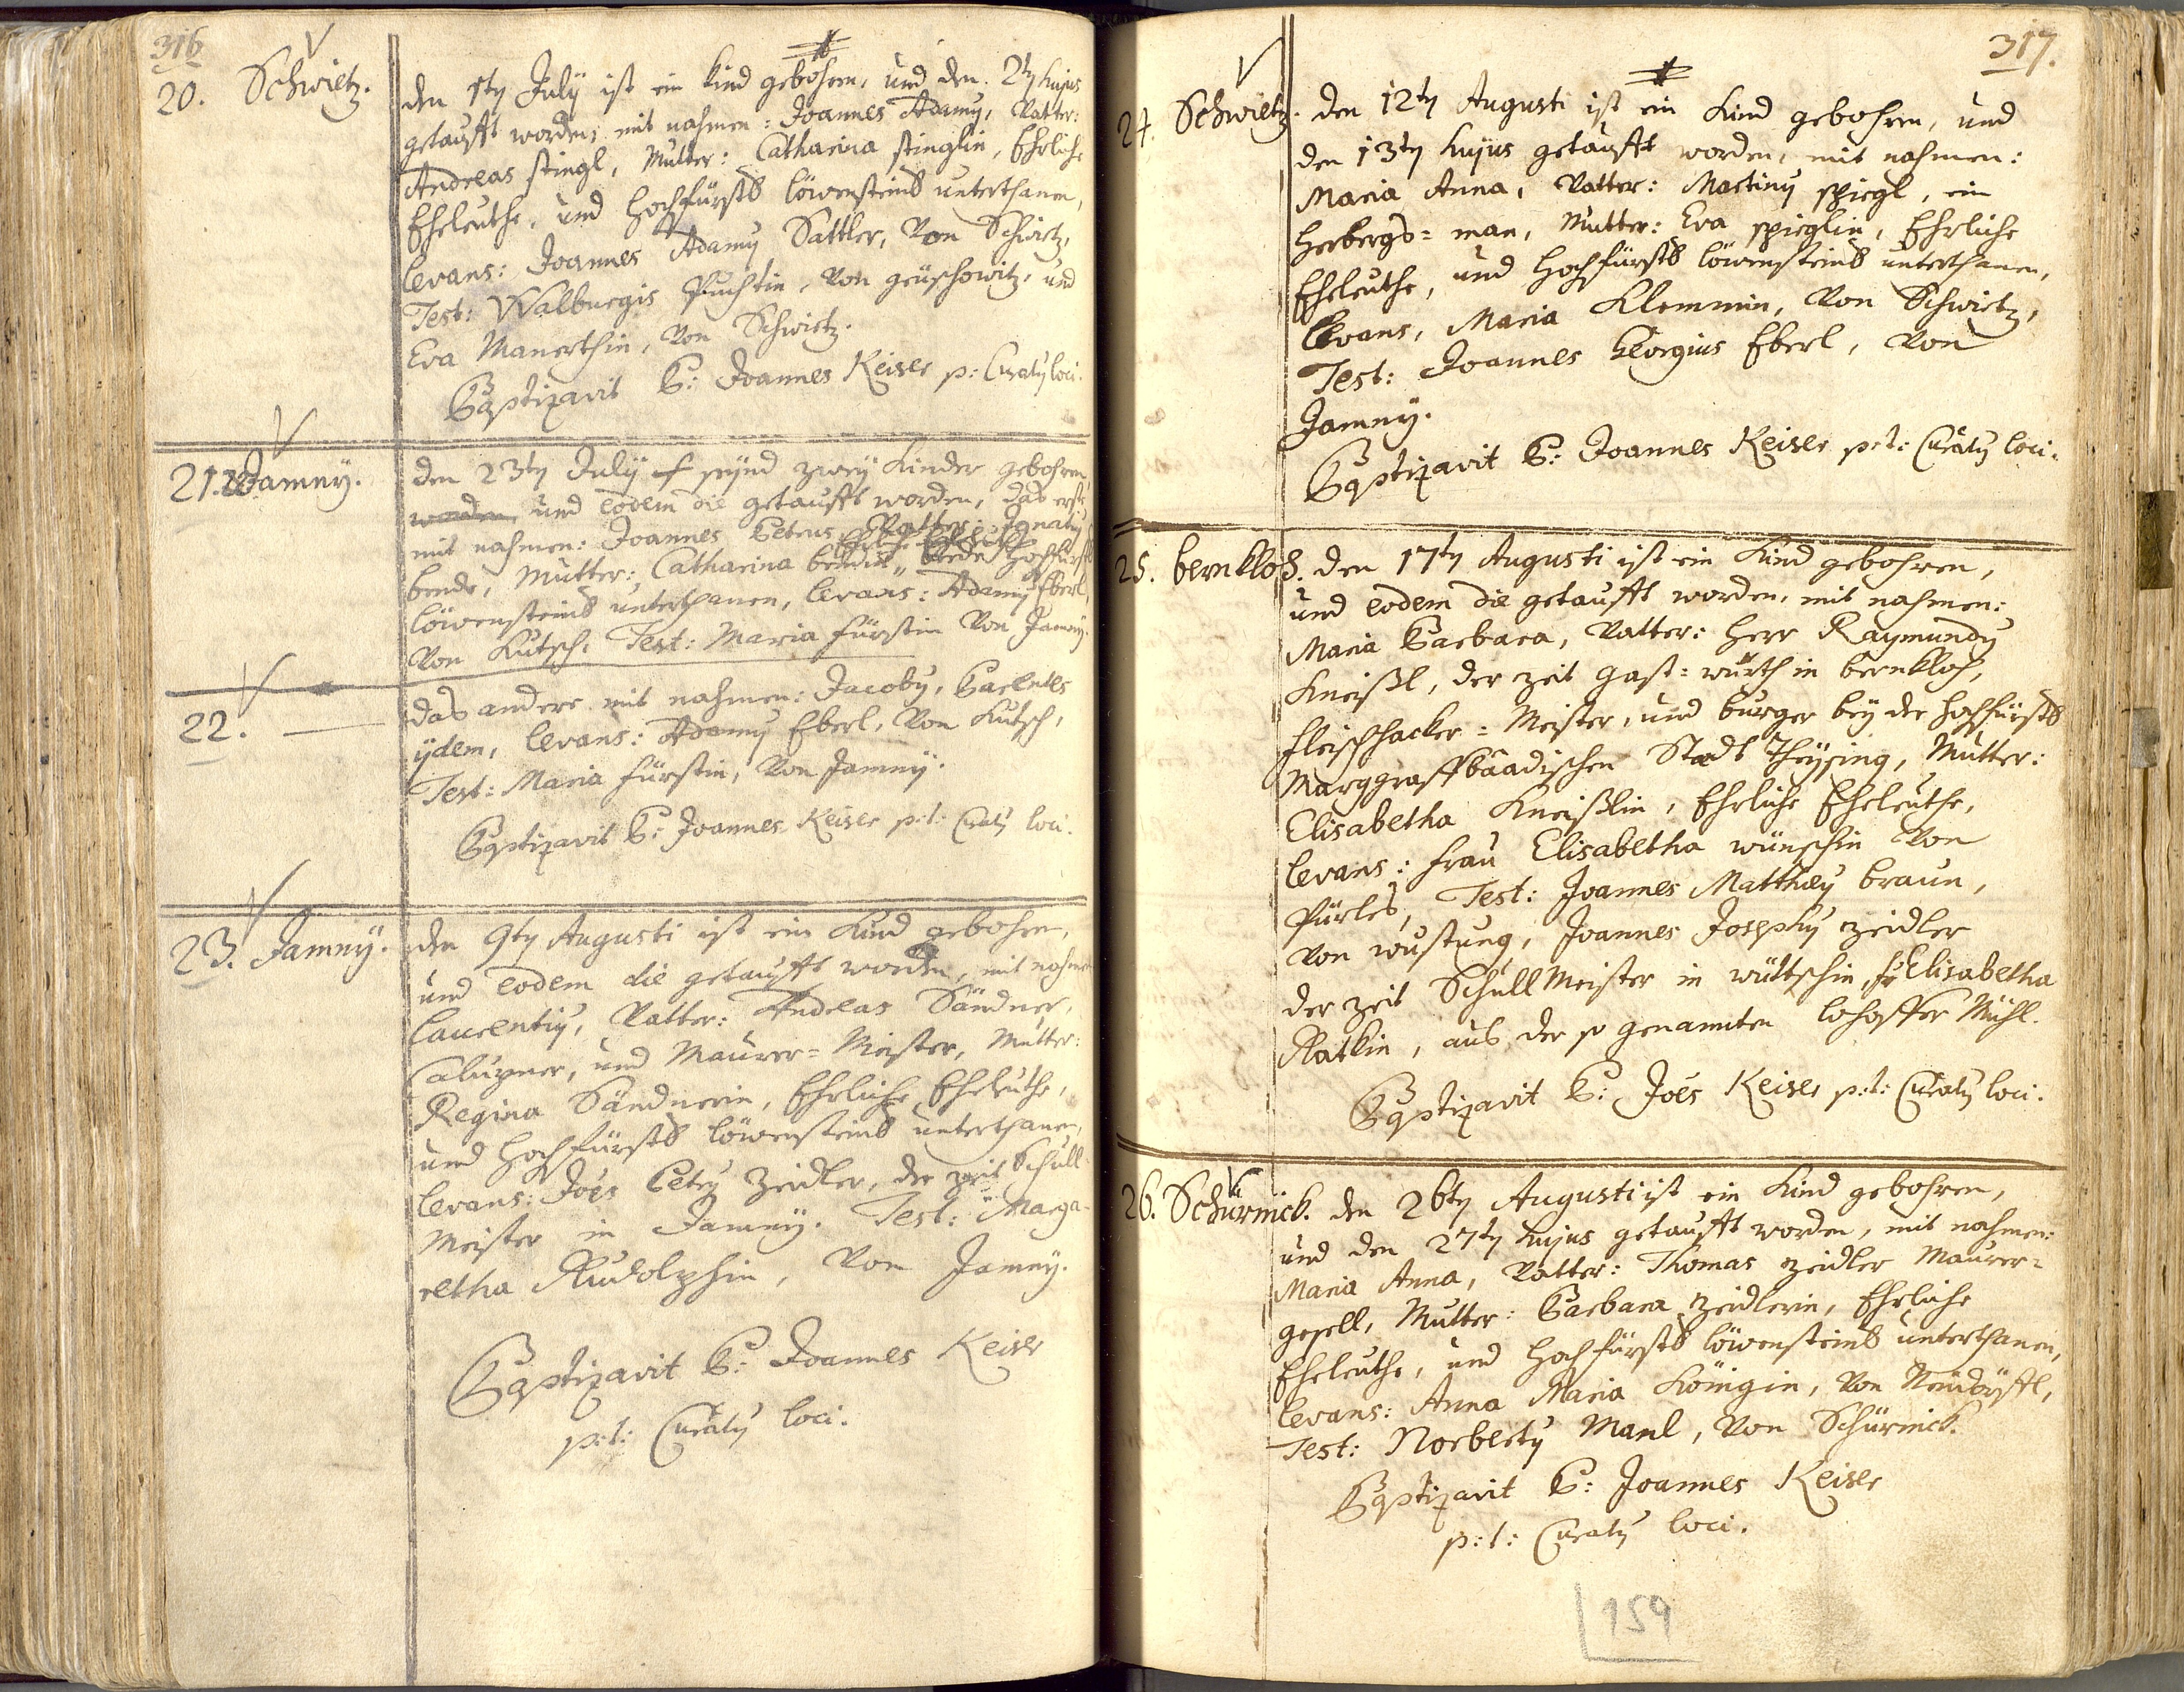 316
20. Schwietz.
den 1ty July ist ein kind gebohren, und den 2ty hujus
getaufft worden, mit nahmen: Joannes Adamy, Vatter:
Andreas stingl, Mutter: Catharina stinglin, Ehrliche
Eheleuthe, und Hochfürstl löwensteinl unterthanen,
levans: Joannes Adamy Sattler, Von Schwietz,
Test: Walburgis, Von, und
Eva Manerthin, Von Schwietz.
Baptizavit P: Joannes Keiser p: Curaty loci.
21. Jamny.
den 23ty July seynd zwey Kinder gebohren
worden, und eodem die getaufft worden, das erste
mit nahmen: Joannes Petrus, Vatter: Ignaty
bende, Mutter: Catharina bendin, Ehrliche Eheleuthe, beede Hochfürstl
löwensteinl unterthanen, levans: Adamy Eberl,
Von Kutsch, Test: Maria fürstin Von Jamny.
22. —
das andere mit nahmen: Jacoby, Parentes
ijdem, levans: Adamy Eberl, Von Kutsch,
Test: Maria fürstin, Von Jamny.
Baptizavit P: Joannes Keiser p:t: Curaty loci.
23. Jamny.
den 9ty Augusti ist ein Kind gebohren,
und eodem die getaufft worden, mit nahmen
Laurentiy, Vatter: Andreas Sändner,
Chalupner, und Maurer= Meister, Mutter:
Regina Sändnerin, Ehrliche Eheleuthe,
und Hochfürstl löwensteinl unterthanen,
levans: Joes Petry Zeidler, der zeit Schull
Meister in Jamny. Test: Marga-
retha Rudolphin, Von Jamny.
Baptizavit P: Joannes Keiser
p:t: Curaty loci.
317.
24. Schwietz.
den 12ty Augusti ist ein Kind gebohren, und
den 13ty hujus getaufft worden, mit nahmen:
Maria Anna, Vatter: Martiny spiegl, ein
Herbergs= man, Mutter: Eva spieglin, Ehrliche
Eheleuthe, und Hochfürstl löwensteinl unterthanen,
levans, Maria Klemmin, Von Schwietz,
Test: Joannes Georgius Eberl, Von
Jamny.
Baptizavit P: Joannes Keiser p:t: Curaty loci.
25. bernkloß.
den 17ty Augusti ist ein Kind gebohren,
und eodem die getaufft worden, mit nahmen:
Maria Barbara, Vatter: Herr Raymundy
Kneißl, der zeit Gast= würth in bernkloß,
fleischhacker= Meister, und burger bey der Hochfürstl
Marggraffbaadischen Stadt Theysing, Mutter:
Elisabetha Kneißlin, Ehrliche Eheleuthe,
levans: frau Elisabetha wünschin Von
Pürles, Test: Joannes Matthæy braun,
Von wustung, Joannes Josephy Zeidler
der zeit Schull Meister in wüttschin, fr Elisabetha
Ratkin, aus der so genannten Mühl.
Baptizavit P: Joës Keiser p:t: Curaty loci.
26. Schürnick.
den 26ty Augusti ist ein Kind gebohren,
und den 27ty hujus getaufft worden, mit nahmen:
Maria Anna, Vatter: Thomas Zeidler Maurer=
gesell, Mutter: Barbara Zeidlerin, Ehrliche
Eheleuthe, und Hochfürstl löwensteinl unterthanen,
levans: Anna Maria Königin, Von Neudörffl,
Test: Norberty Manl, Von Schürnick.
Baptizavit P: Joannes Keiser
p:t: Curaty loci.
159